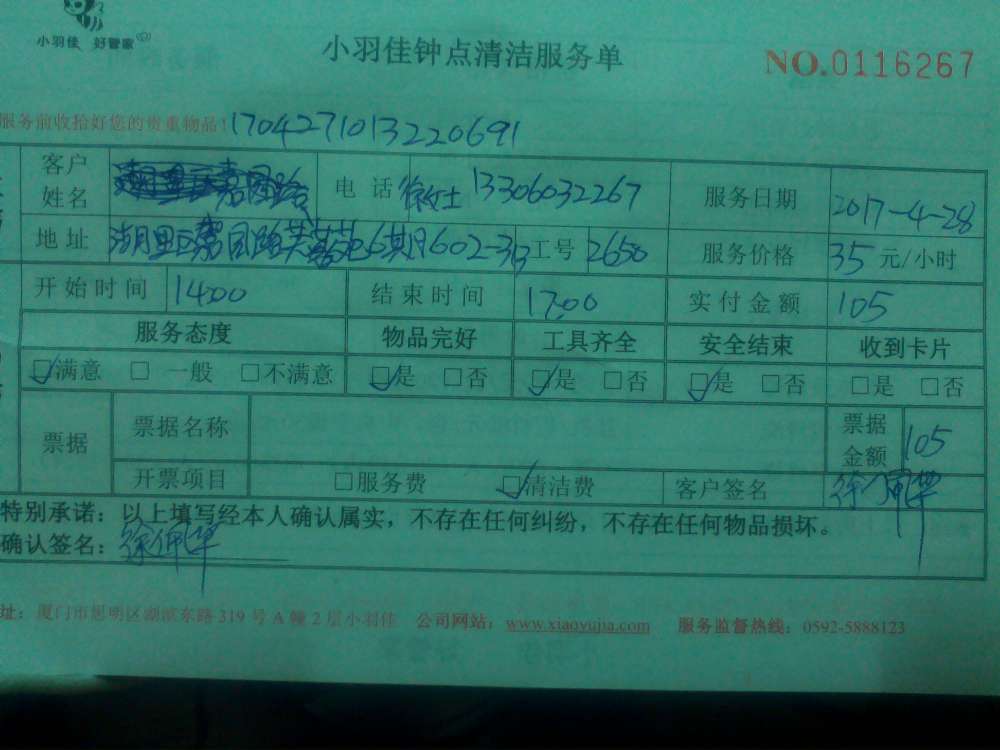 小羽佳 好管家
小羽佳钟点清洁服务单
NO.0116267
服务前收拾好您的贵重物品!
170427101322069１
客户姓名 电话 徐女士 13306032267 服务日期 2017-4-28
地址 湖里区嘉园路芙蓉苑6期 602-313 工号 2650 服务价格 35 元/小时
开始时间 14:00 结束时间 17:00 实付金额 105
服务态度 物品完好 工具齐全 安全结束 收到卡片
☑满意 □一般 □不满意 ☑是 □否 ☑是 □否 ☑是 □否 □是 □否
票据 票据名称 票据金额 105
开票项目 □服务费 ☑清洁费 客户签名 徐
特别承诺：以上填写经本人确认属实，不存在任何纠纷，不存在任何物品损坏。
确认签名：徐
址：厦门市思明区湖滨东路 319 号 A 幢 2 层小羽佳 公司网站：www.xiaoyujia.com 服务监督热线：0592-5888123